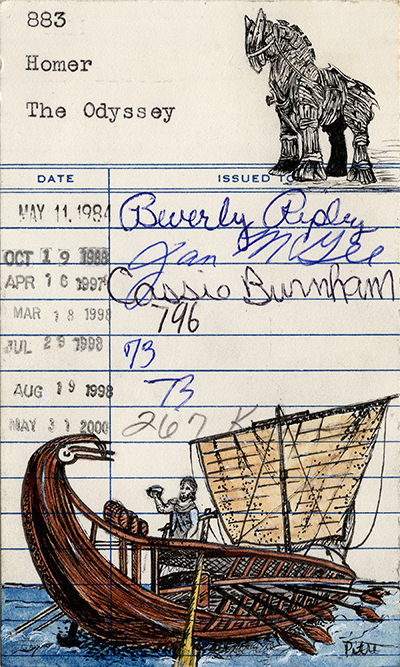 883
Homer
The Odyssey
DATE ISSUED TO
MAY 11, 1984 Beverly Ripley
OCT 19 1988 Jan McGee
APR 16 1997 Cassio Burnham
MAR 18 1998 796
JUL 29 1998 73
AUG 19 1998 73
MAY 31 2000 267 K
Pitre